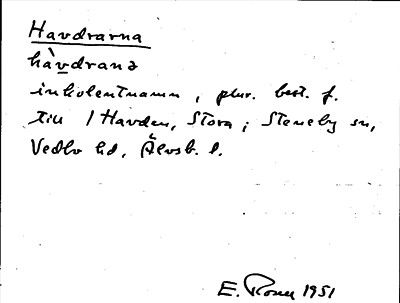 Havdrarna
hàvdrana
inkolentnamn, plur. best. f.
till 1 Havden, Stora; Steneby sn,
Vedbo hd, Älvsb. l.
E. Rosell 1951